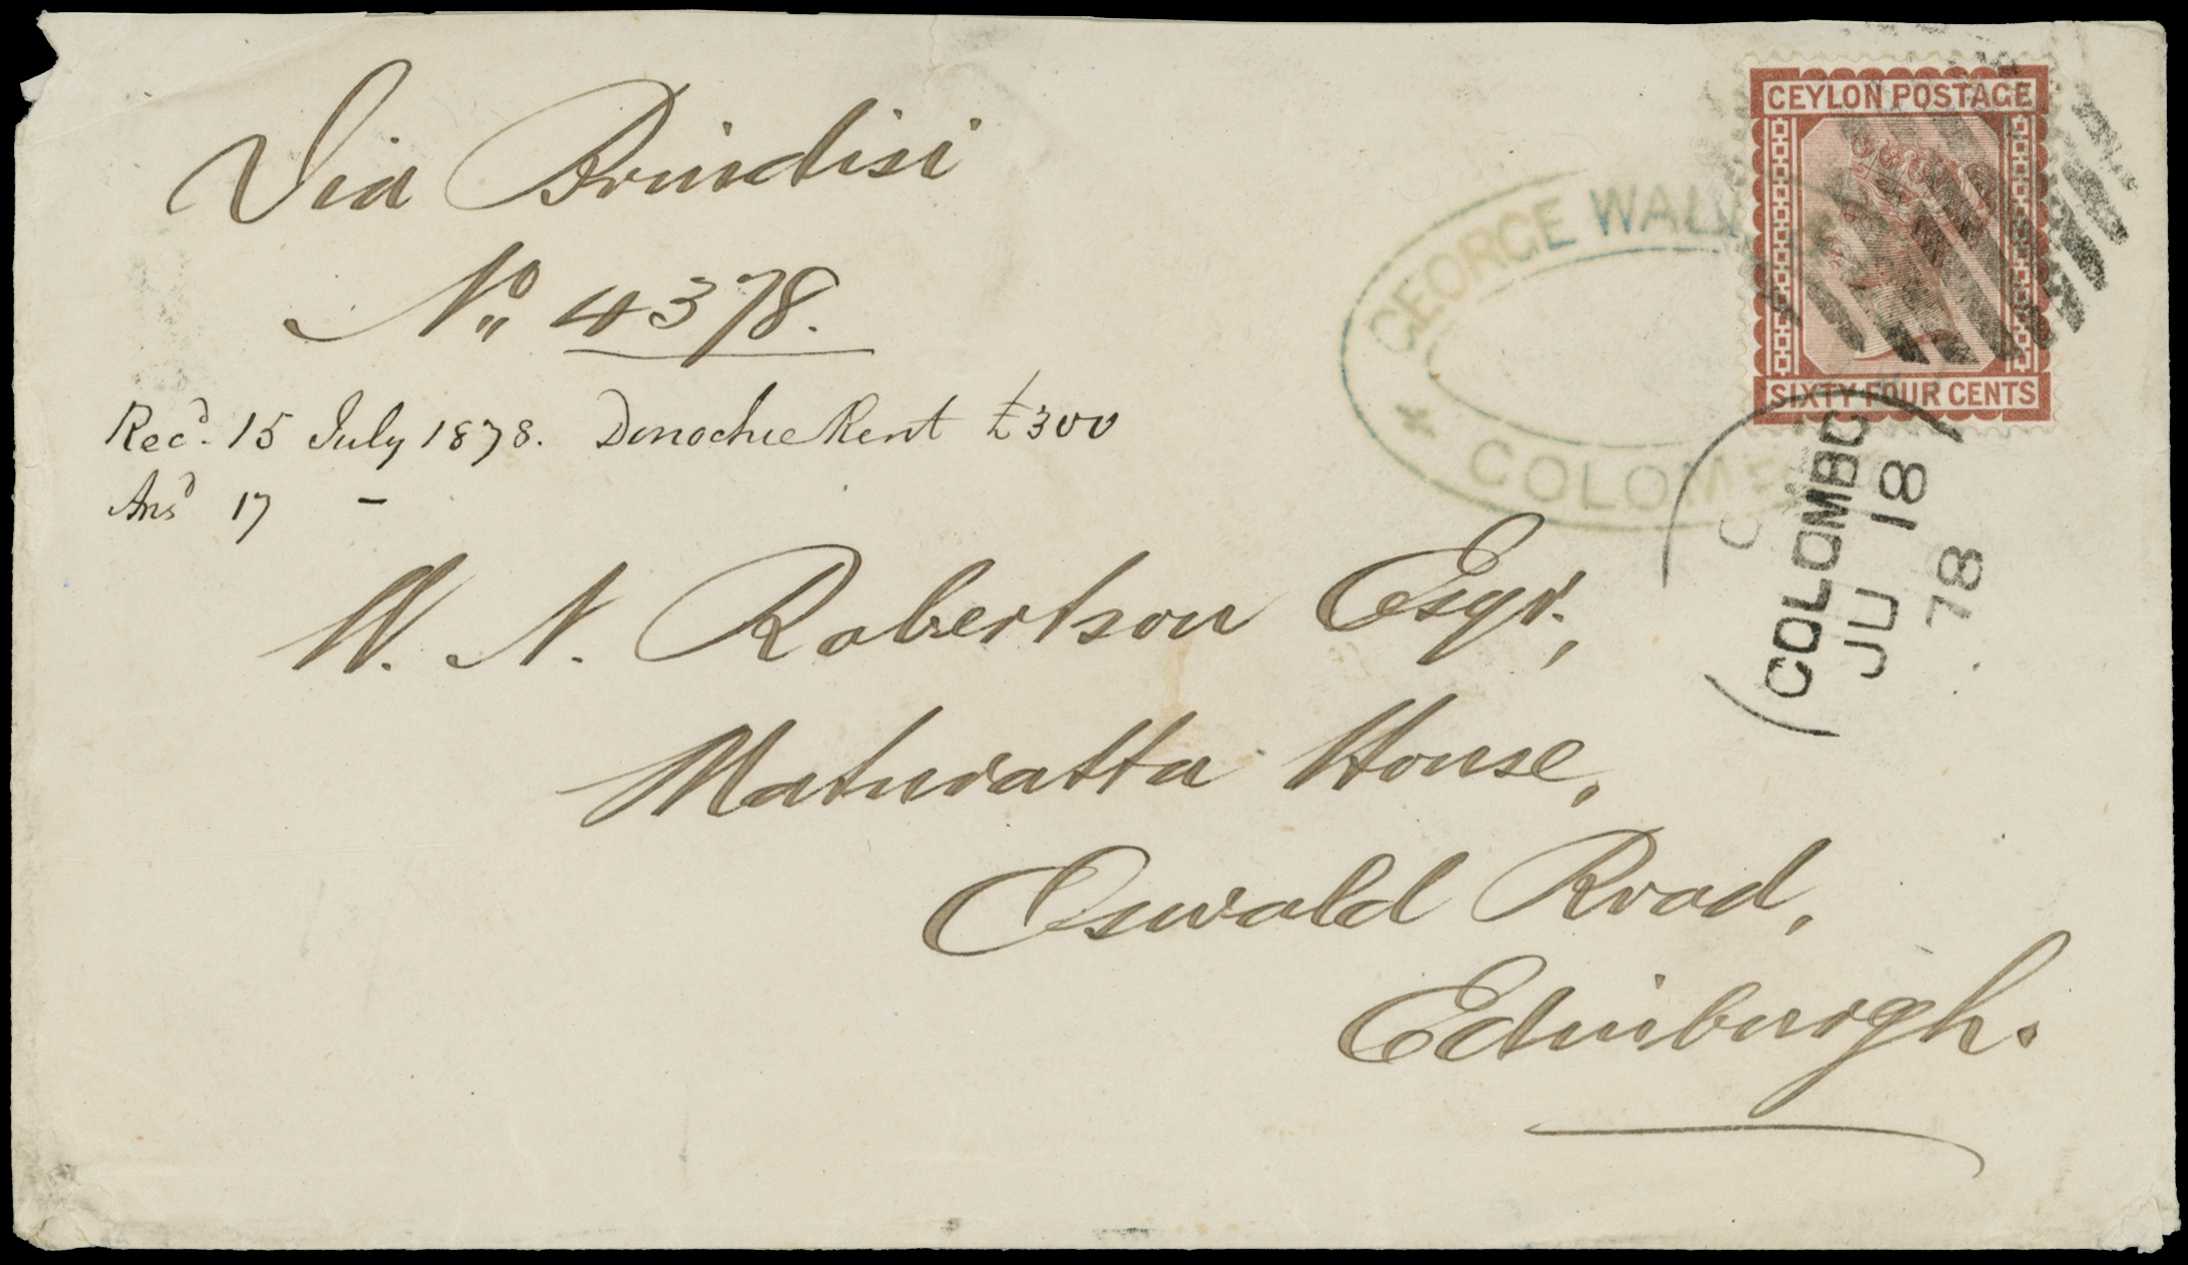 Via Brindisi
No. 4378.
Recd. 15 July 1878. Donochie Rent £300
Ansd 17 –
W. N. Robertson Esqr.,
Maturatta House,
Oswald Road,
Edinburgh.
CEYLON POSTAGE
SIXTY FOUR CENTS
GEORGE WALL
COLOMB
COLOMBO
JU 18
78